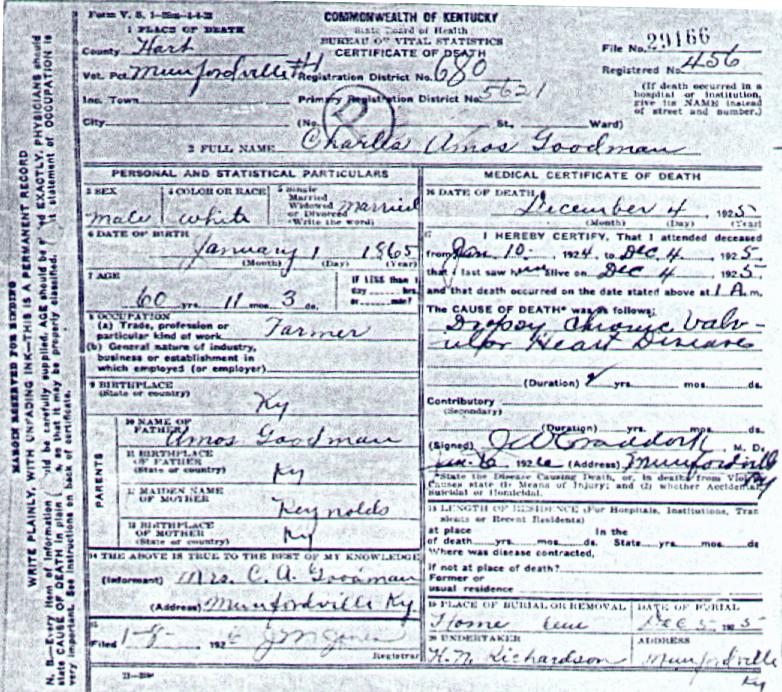 Form V. S. 1
COMMONWEALTH OF KENTUCKY
State Board of Health
BUREAU OF VITAL STATISTICS
CERTIFICATE OF DEATH
1 PLACE OF DEATH
County Hart
Vot. Pct. Munfordville #1 Registration District No. 680
Inc. Town Primary Registration District No. 5621
City (No. St., Ward)
File No. 29166
Registered No. 456
(If death occurred in a
hospital or institution,
give its NAME instead
of street and number.)
2 FULL NAME Charles Amos Goodman
PERSONAL AND STATISTICAL PARTICULARS
3 SEX
male
4 COLOR OR RACE
white
5 Single
Married
Widowed
or Divorced
(Write the word)
Married
6 DATE OF BIRTH
January 1 1865
(Month) (Day) (Year)
7 AGE
60 yrs. 11 mos. 3 ds.
If LESS than 1
day hrs.
or min.?
8 OCCUPATION
(a) Trade, profession or
particular kind of work Farmer
(b) General nature of industry,
business or establishment in
which employed (or employer)
9 BIRTHPLACE
(State or country)
Ky
PARENTS
10 NAME OF
FATHER
Amos Goodman
11 BIRTHPLACE
OF FATHER
(State or country)
Ky
12 MAIDEN NAME
OF MOTHER
Reynolds
13 BIRTHPLACE
OF MOTHER
(State or country)
Ky
14 THE ABOVE IS TRUE TO THE BEST OF MY KNOWLEDGE
(Informant) Mrs. C. A. Goodman
(Address) Munfordville Ky
15
Filed 192
Registrar
MEDICAL CERTIFICATE OF DEATH
16 DATE OF DEATH
December 4, 1925
(Month) (Day) (Year)
17 I HEREBY CERTIFY, That I attended deceased
from Jan 10, 1924, to Dec 4, 1925
that I last saw him alive on Dec 4, 1925
and that death occurred on the date stated above at 1 A m.
The CAUSE OF DEATH* was as follows:
Dropsy Chronic Valv-
ular Heart Diseases
(Duration) yrs. mos. ds.
Contributory
(Secondary)
(Duration) yrs. mos. ds.
(Signed) Craddock M. D.
192 (Address) Munfordville
Ky
*State the Disease Causing Death, or, in deaths from Violent
Causes state (1) Means of Injury; and (2) whether Accidental,
Suicidal or Homicidal.
18 LENGTH OF RESIDENCE (For Hospitals, Institutions, Tran
sients or Recent Residents)
at place In the
of death yrs. mos. ds. State yrs. mos. ds
Where was disease contracted,
if not at place of death?
Former or
usual residence
19 PLACE OF BURIAL OR REMOVAL
Home
DATE OF BURIAL
Dec 5, 1925
20 UNDERTAKER
H. N. Richardson
ADDRESS
Munfordville
Ky
MARGIN RESERVED FOR BINDING
WRITE PLAINLY, WITH UNFADING INK—THIS IS A PERMANENT RECORD
N. B.—Every item of information should be carefully supplied. AGE should be stated EXACTLY. PHYSICIANS should
state CAUSE OF DEATH in plain so that it may be properly classified. statement of OCCUPATION is
very important. See instructions on back of certificate.